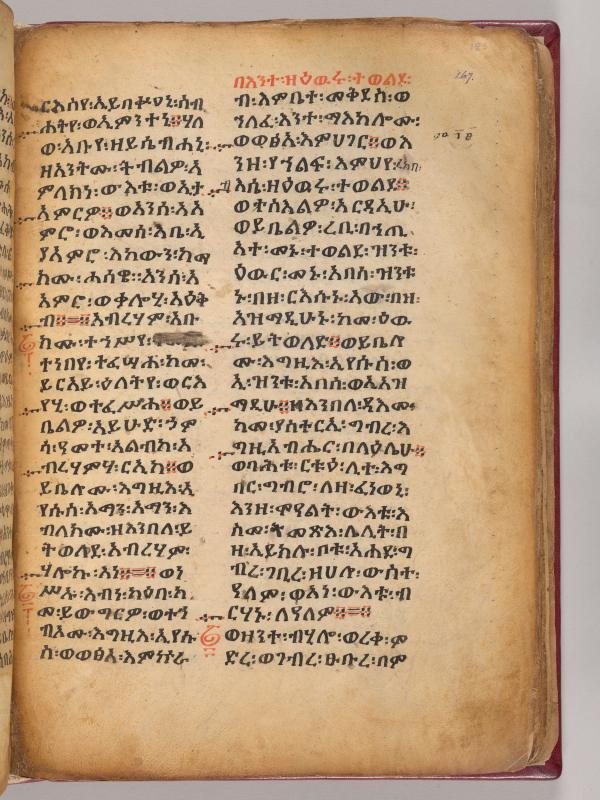 ርእስየ፡ኢይበቍዐኒ፡ሰብ
ሐትየ፡ወኢምንተኒ።ሃሎ
ወ፡አቡየ፡ዘይሴብሐኒ፡
ዘአንትሙ፡ትብልዎ፡አ
ምላክነ፡ውእቱ፡ወኢተ
አምርዎ።ወአንሰ፡አአ
ምሮ፡ወእመሰ፡እቤ፡ኢ
ያአምሮ፡እከውን፡ከማ
ክሙ፡ሐሳዌ።አንሰ፡አ
አምሮ፡ወቃሎሂ፡አዐቅ
ብ።=።አብረሃም፡አቡ
ክሙ፡ተኀሥየ፡
ትንበየ፡ተፈሣሕ፡ከመ፡
ይርአይ፡ዕለትየ፡ወርእ
የሂ፡ወተፈሥሐ።ወይ
ቤልዎ፡አይሁድ፡ኃም
ሳ፡ዓመተ፡አልብከ፡አ
ብረሃምሃ፡ርኢከ።ወ
ይቤሎሙ፡እግዚእ፡ኢ
የሱስ፡አማን፡አማን፡እ
ብለክሙ፡ዘእንበለ፡ይ
ትወለድ፡አብረሃም፡
ሃሎኩ፡አነ።=።ወነ
ሥኡ፡እብነ፡ከዕበ፡ከ
መ፡ይውግርዎ፡ወተኀ
ብኦሙ፡እግዚእ፡ኢየሱ
ስ፡ወወፅአ፡እምኵራ
በእንተ፡ዘዕዉሩ፡ተወልደ፡
ብ፡እምቤተ፡መቅደስ፡ወ
ኀለፈ፡እንተ፡ማእከሎሙ፡
ወወፅአ፡እምሀገር።ወእ
ንዘ፡የኀልፍ፡እምህየ፡ረከበ፡
እሴ፡ዘዕዉሩ፡ተወልደ።
ወተስእልዎ፡አርዳኢሁ፡
ወይቤልዎ፡ረቢ፡በኀጢ
አተ፡መኑ፡ተወልደ፡ዝንቱ፡
ዕዉር፡መኑ፡አበሰ፡ዝንቱ
ኑ፡በዘ፡ርእሱኑ፡አው፡በዘ፡
አዝማዲሁኑ፡ከመ፡ዕዉ
ሩ፡ይትወለድ።ወይቤሎ
ሙ፡እግዚእ፡ኢየሱስ፡ወ
ኢ፡ዝንቱ፡አበሰ፡ወኢአዝ
ማዲሁ።ዘእንበለ፡ዳእሙ
ከመ፡ያስተርኢ፡ግብረ፡እ
ግዚአብሔር፡በላዕሌሁ።
ወባሕቱ፡ርቱዕ፡ሊተ፡እግ
በር፡ግብሮ፡ለዘ፡ፈነወኒ፡
እንዘ፡መዓልት፡ውእቱ፡እ
ስመ፡ትመጽእ፡ሌሊት፡በ
ዘ፡ኢይክሉ፡ቦቱ፡አሐደ፡ግ
ብረ፡ገቢረ፡ዘሀሎ፡ውስተ፡
ዓለም፡ወአነ፡ውእቱ፡ብ
ርሃኑ፡ለዓለም።=።
ወዘንተ፡ብሂሎ፡ወረቀ፡ም
ድረ፡ወገብረ፡ፅቡረ፡በም